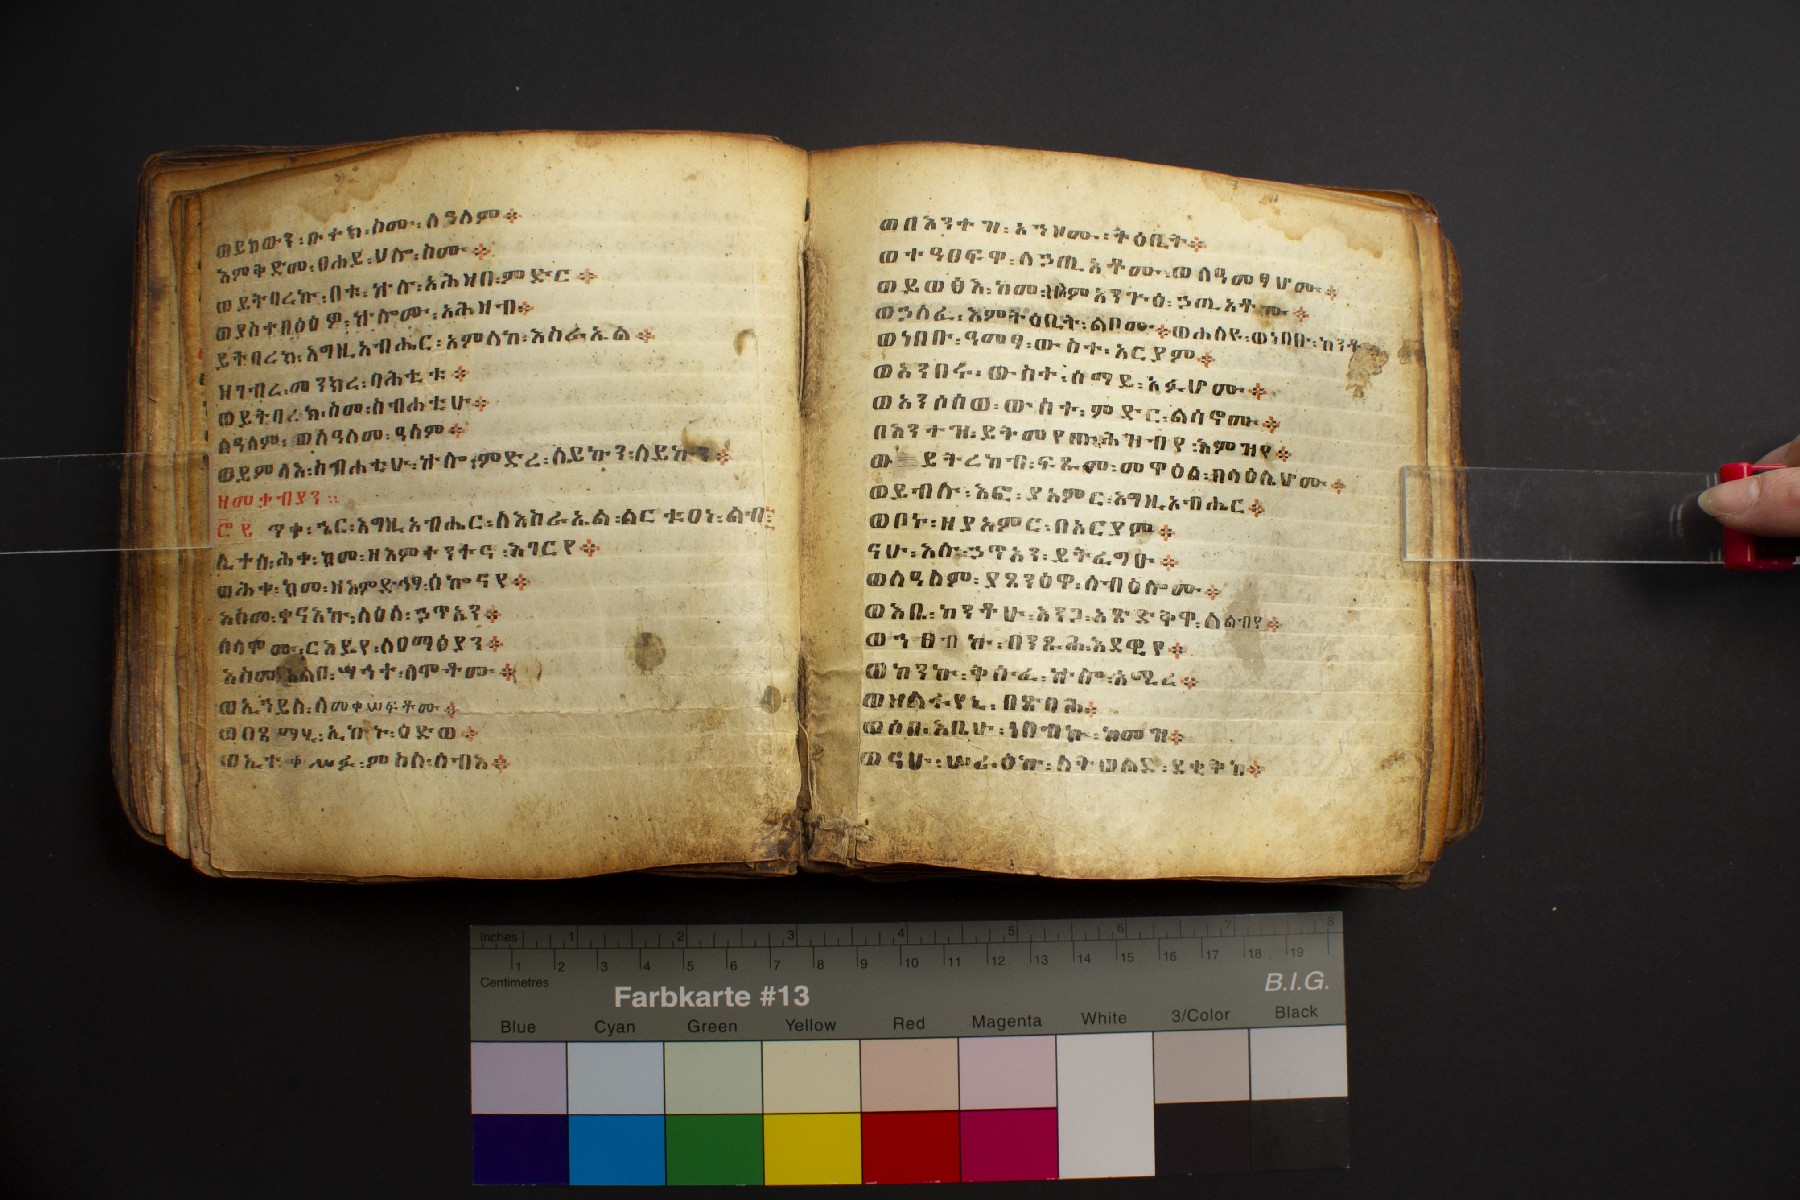 ወይከውን፡ቡተክ፡ስሙ፡ለዓለም፨
እምቅድመ፡ፀሐይ፡ሀሎ፡ስሙ፨
ወይትባረኩ፡በቱ፡ኵሉ፡አሕዛበ፡ምድር፨
ወያስተበፅዕዎ፡ኵሎሙ፡አሕዛብ፨
ይትባረክ፡እግዚአብሔር፡አምላከ፡እስራኤል፨
ዘገብረ፡መንክረ፡ባሕቲቱ፨
ወይትባረክ፡ስመ፡ስብሐቲሁ፨
ለዓለም፡ወለዓለመ፡ዓለም፨
ወይምላእ፡ስብሐቲሁ፡ኵሎ፡ምድረ፡ለይኩን፡ለይኩን፨
ዘመቃብያን።
ጥቀ፡ኄር፡እግዚአብሔር፡ለእስራኤል፡ልርቱዐነ፡ልብ፡
ሊተሰ፡ሕቀ፡ከመ፡ዘእምተንትና፡እገርየ፨
ወሕቀ፡ከመ፡ዘእምድኅፃ፡ሰኰናየ፨
እስመ፡ቀናእኩ፡ለዕለ፡ኃጥኣን፨
ሰላሞሙ፡ርእይየ፡ለዐማፅያን፨
እስመ፡አልቦ፡ሣኅተ፡ለሞቶሙ፨
ወኢኀይለ፡ለመቀሠፍቶሙ፨
ወበጻማሂ፡ኢኮኑ፡ዕድወ፨
ወኢተቀሥፉ፡ምስለ፡ሰብእ፨
ወበእንተዝ፡አኀዞሙ፡ትዕቢት፨
ወተዓፀፍዋ፡ለኃጢአቶሙ፡ወለዓመፃሆሙ፨
ወይወፅእ፡ከመ፡ዘእምአንጕዕ፡ኃጢአቶሙ፨
ወኃለፈ፡እምትዕቢት፡ልቦሙ፨ወሐለዩ፡ወነበቡ፡ከንቶ፨
ወነበቡ፡ዓመፃ፡ውስተ፡አርያም፨
ወአንበሩ፡ውስተ፡ሰማይ፡አፉሆሙ፨
ወአንሶሰወ፡ውስተ፡ምድር፡ልሳኖሙ፨
በእንተዝ፡ይትመየጡ፡ሕዝብየ፡እምዝየ፨
ወ ይትረከብ፡ፍጹም፡መዋዕል፡በላዕሌሆሙ፨
ወይብሉ፡እፎ፡ያአምር፡እግዚአብሔር፨
ወቦኑ፡ዘያአምር፡በአርያም፨
ናሁ፡እሉ፡ኃጥኣን፡ይትፈግዑ፨
ወለዓለም፡ያጸንዕዋ፡ለብዕሎሙ፨
ወእቤ፡ከንቶሁ፡እንጋ፡አጽደቅዋ፡ለልብየ፨
ወኀፀብኩ፡በንጹሕ፡እደዊየ፨
ወኮንኩ፡ቅሱፈ፡ኵሎ፡አሚረ፨
ወዘልፋየኒ፡በጽባሕ፨
ወሶበ፡እቤሁ፡ነበብኩ፡ከመዝ፨
ወናሁ፡ሠራዕኩ፡ለትውልድ፡ደቂቅከ፨
Inches 1 2 3 4 5 6 7 8
1 2 3 4 5 6 7 8 9 10 11 12 13 14 15 16 17 18 19
Centimetres
Farbkarte #13
B.I.G.
Blue Cyan Green Yellow Red Magenta White 3/Color Black